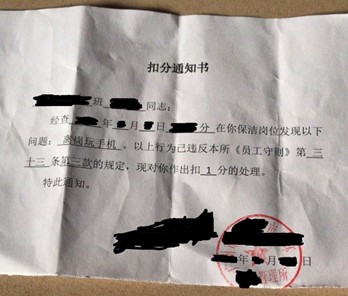 扣分通知书
班 同志:
经查 年 月 日 分 在你保洁岗位发现以下
问题: 离岗玩手机 。以上行为已违反本所《员工守则》第 三
十三 条第三款的规定,现对你作出扣 1 分的处理。
特此通知。
年 月 日
管理所